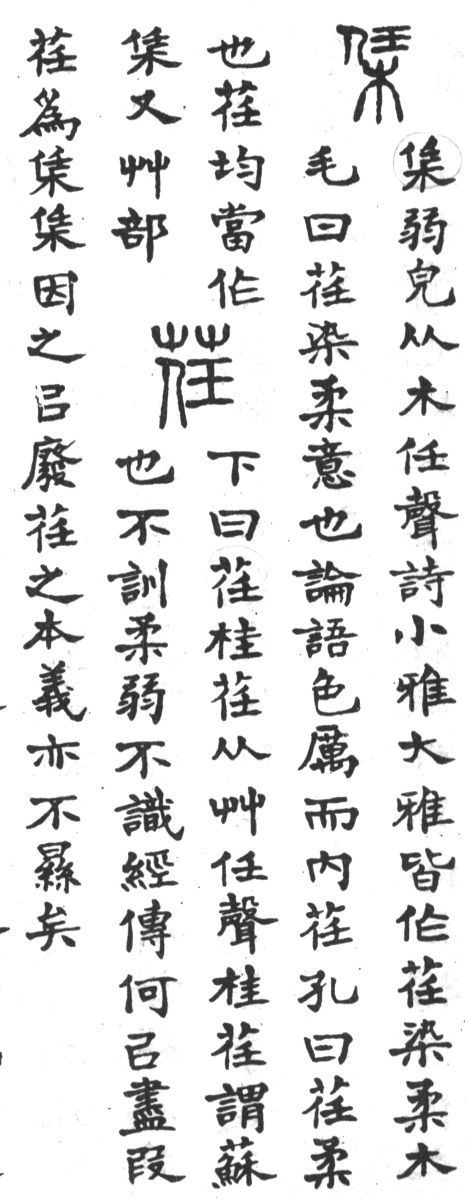 栠
栠弱皃从木任聲詩小雅大雅皆作荏染柔木
毛曰荏染柔意也論語色厲而內荏孔曰荏柔
也荏均當作
栠又艸部
荏
下曰荏桂荏从艸任聲桂荏謂蘇
也不訓柔弱不識經傳何㠯盡叚
荏為栠栠因之㠯廢荏之本義亦不㬎矣